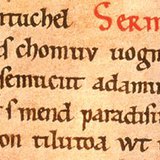 mtuchel Serm
s chomuv uogm
semucut adamu
s mend paradisu
on tilutoa wt